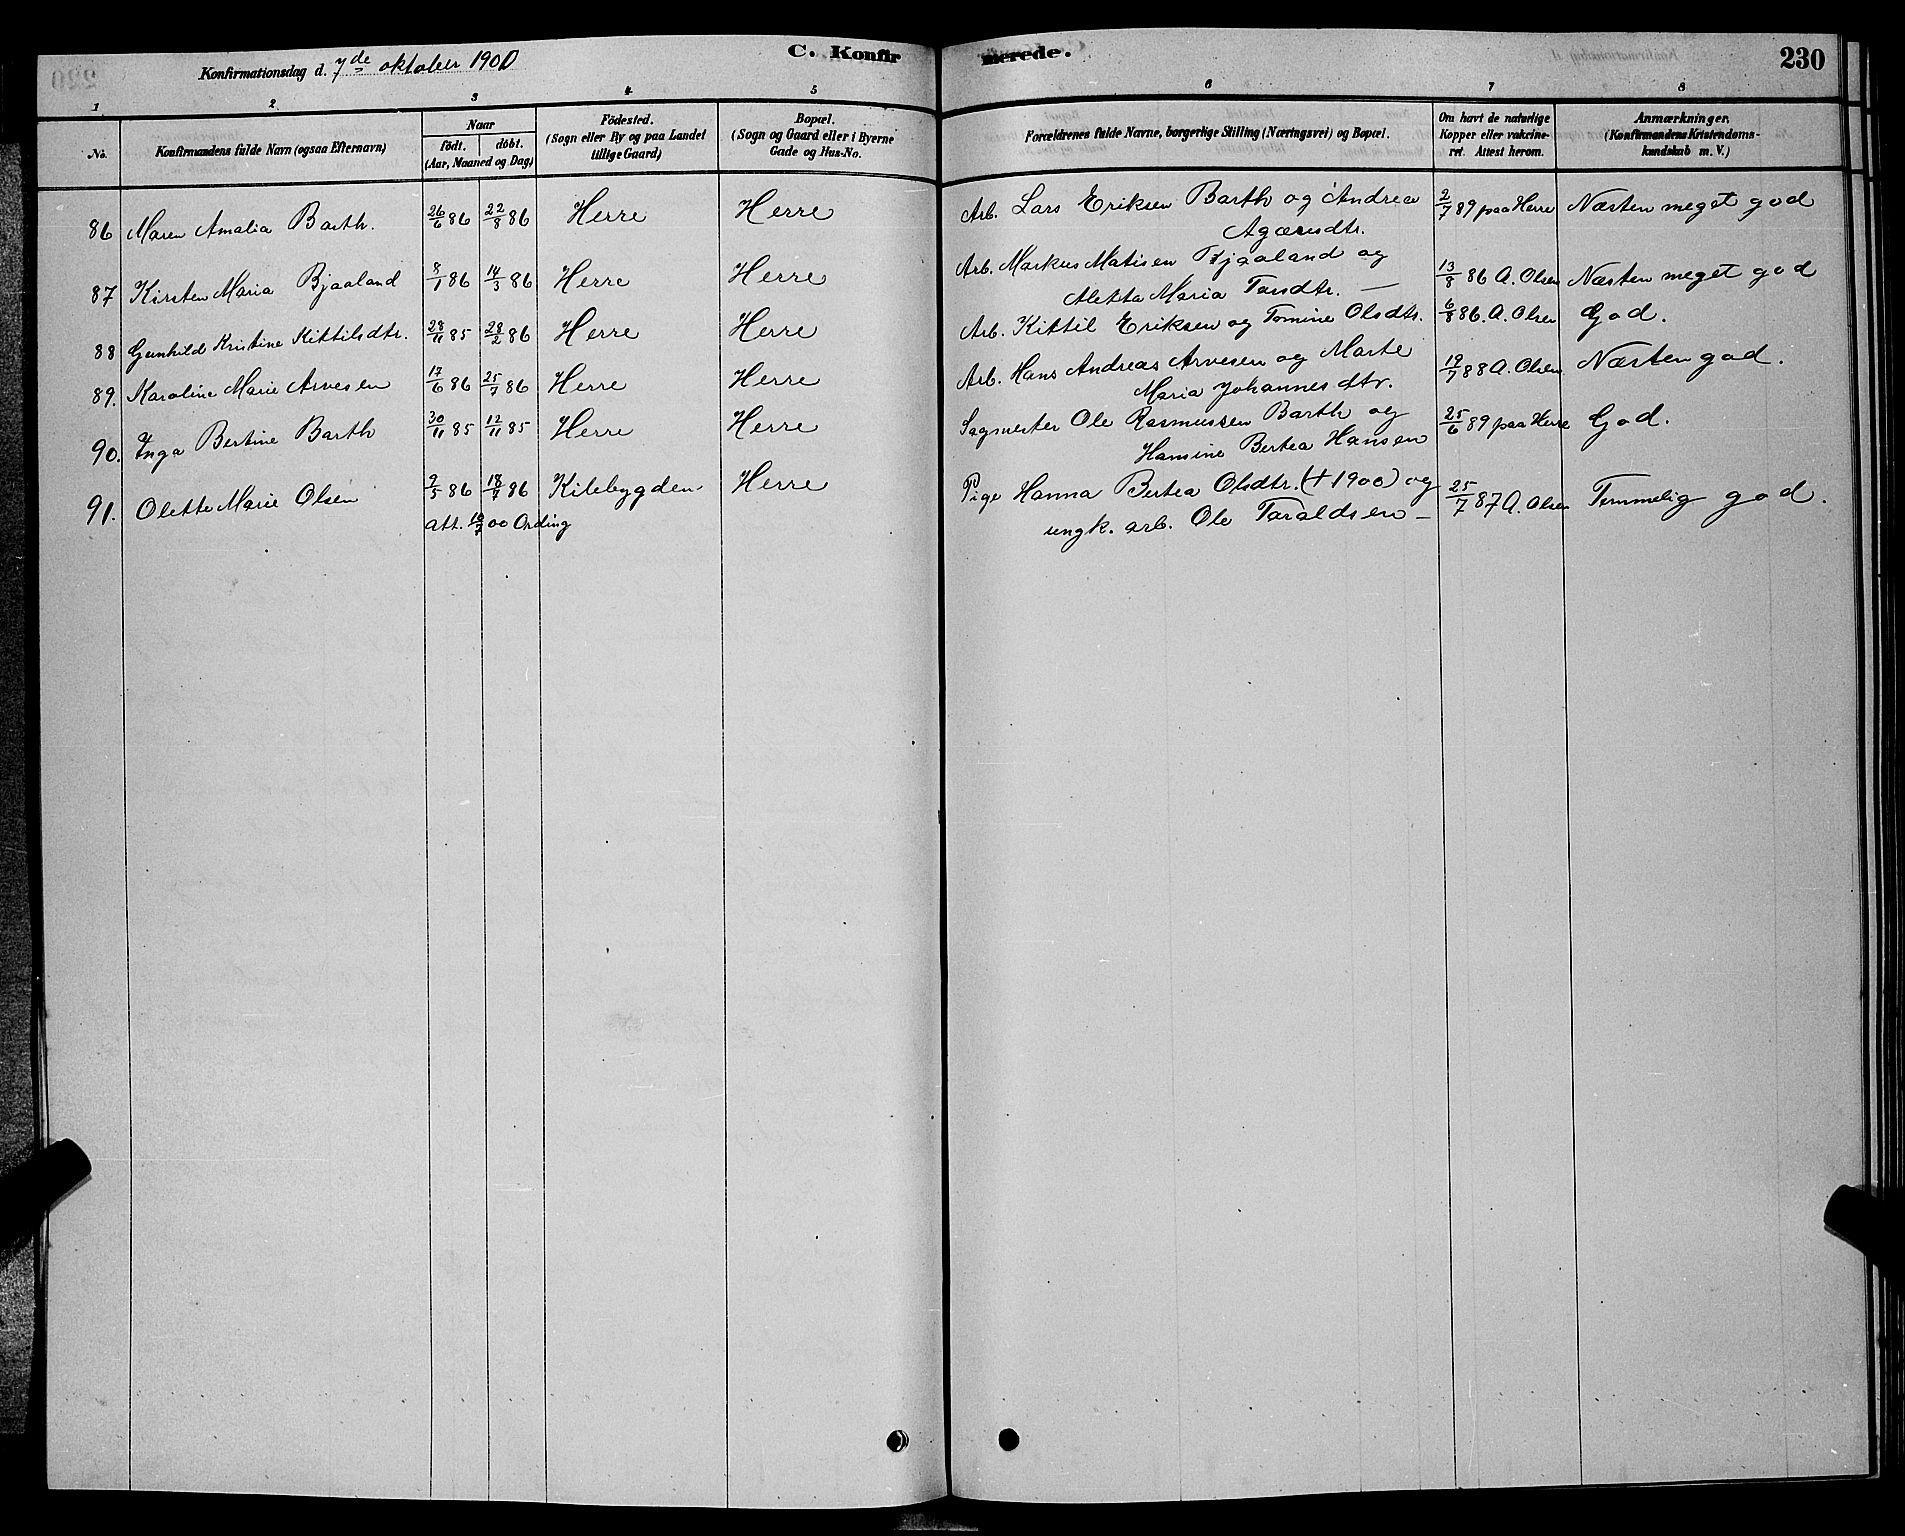 Konfirmationsdag d. 7de oktober 1900
C. Konfirmerede.
230
1 2 3 4 5 6 7 8
No.
Konfirmandens fulde Navn (ogsaa Efternavn)
Naar
födt. döbt.
(Aar, Maaned og Dag)
Födested.
(Sogn eller By og paa Landet
tillige Gaard)
Bopæl.
(Sogn og Gaard eller i Byerne
Gade og Hus-No.
Forældrenes fulde Navne, borgerlige Stilling (Næringsvei) og Bopæl.
Om havt de naturlige
Kopper eller vakcine-
ret. Attest herom.
Anmærkninger,
(Konfirmandens Kristendoms-
kundskab m. V.)
86 Maren Amalia Barth. 26/6 86 22/8 86 Herre Herre Arb. Lars Eriksen Barth og Andrea 2/7 89 paa Herre Næsten meget god
Agæresdtr.
87 Kirsten Maria Bjaaland 8/1 86 14/3 86 Herre Herre Arb. Markus Matisen Bjaaland og 13/8 86 A. Olsen Næsten meget god
Aletta Maria Tarsdtr. —
88 Gunhild Kristine Kittilsdtr. 28/11 85 28/2 86 Herre Herre Arb. Kittil Eriksen og Tomine Olsdtr. 6/8 86. A. Olsen God.
89. Karoline Marie Arvesen 17/6 86 25/7 86 Herre Herre Arb. Hans Andreas Arvesen og Marte 19/7 88 A. Olsen Næsten god.
Maria Johannesdtr.
90. Inga Bertine Barth 30/11 85 12/11 85 Herre Herre Sagmester Ole Rasmussen Barth og 25/6 89 paa Herre God.
Hansine Bertea Hansen
91. Olette Marie Olsen 2/5 86 18/7 86 Kilebygden Herre Pige Hanna Bertea Olsdtr. (+ 1900) og 25/7 87 A. Olsen Temmelig god.
att. 10/7 00 Ording ungk. arb. Ole Taraldsen —